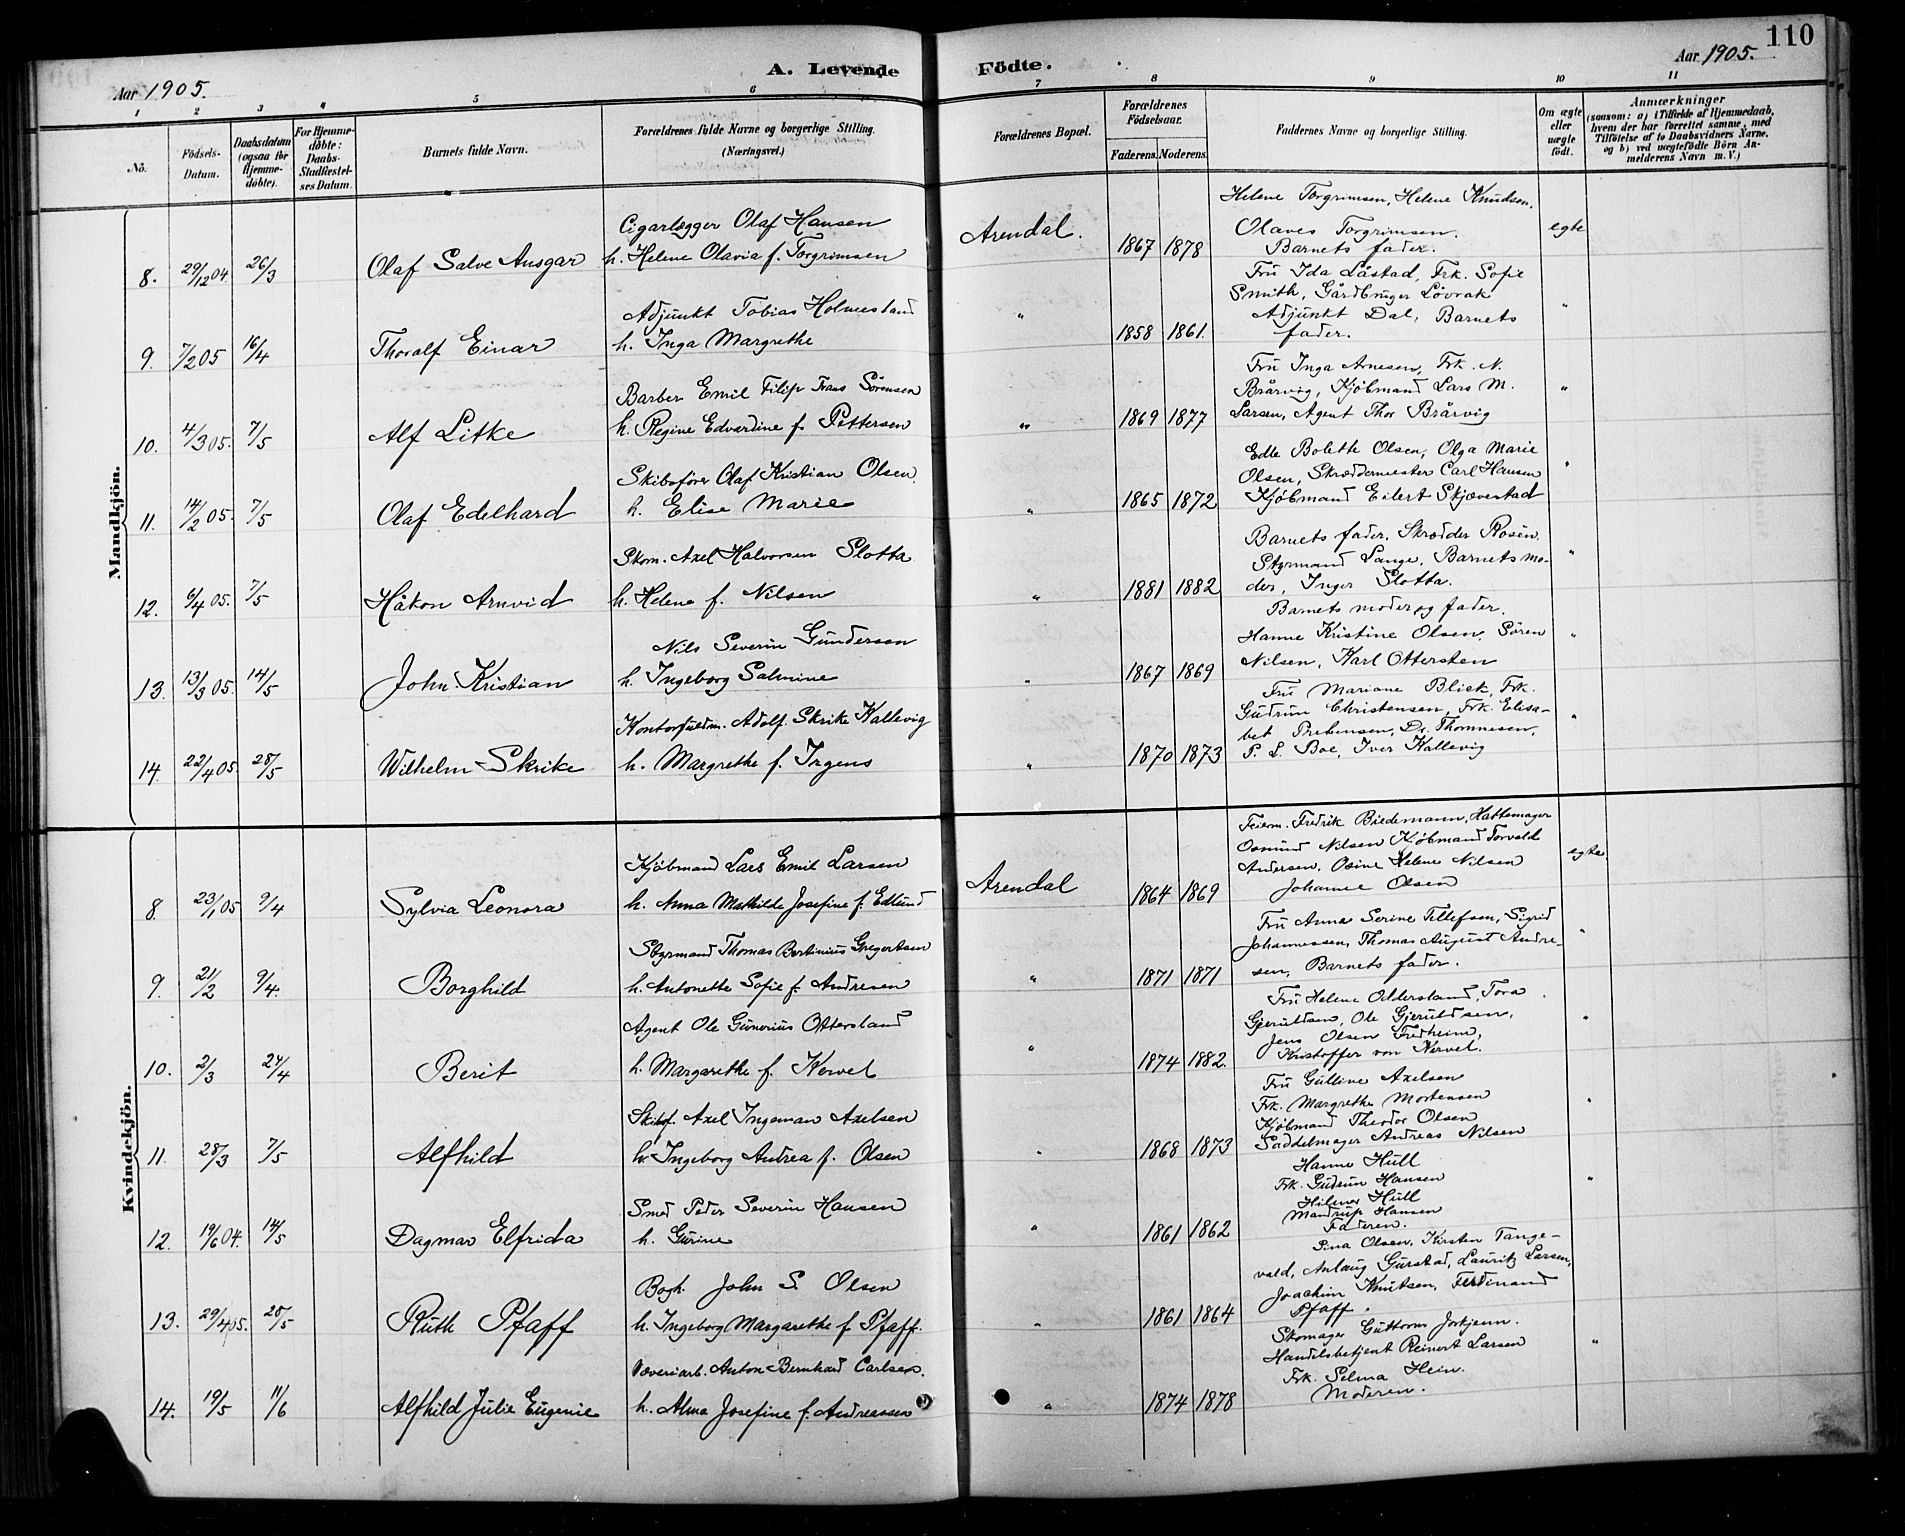 110
Aar 1905.
A. Levende Födte.
Aar 1905.
1 2 3 4 5 6 7 8 9 10 11
No.
Födsels-Datum.
Daabsdatum (ogsaa for Hjemmedöbte).
For Hjemmedöbte: Daabs-Stadfæstelses Datum.
Barnets fulde Navn.
Forældrenes fulde Navne og borgerlige Stilling. (Næringsvei.)
Forældrenes Bopæl.
Forældrenes Födselsaar.
Faderens. Moderens.
Faddernes Navne og borgerlige Stilling.
Om ægte eller uægte födt.
Anmærkninger (saasom: a) i Tilfælde af Hjemmedaab, hvem der har forrettet samme, med Tilföielse af to Daabsvidners Navne, og b) ved uægtefödte Börn Anmelderens Navn m. V.)
Mandkjön.
8. 29/12 04. 26/3 Olaf Salve Ansgar
Cigarlægger Olaf Hansen
h. Helene Olavia f. Torgrimsen
Arendal. 1867 1878
Helene Torgrimsen, Helene Knudsen,
Olaves Torgrimsen.
Barnets fader.
egte
9. 7/2 05 16/4 Thoralf Einar
Adjunkt Tobias Holmestand
h. Inga Margrethe
" 1858 1861.
Fru Ida Låstad, Frk. Sofie
Smith, Gårdbruger Lövrak
Adjunkt Dal, Barnets
fader.
"
10. 4/3 05. 7/5 Alf Litke
Barber Emil Filip Frans Sörensen
h. Regine Edvardine f. Pettersen
" 1869 1877
Fru Inga Arnesen, Frk. N.
Brårvig, Kjöbmand Lars M.
Larsen, Agent Thor Brårvig
"
11. 14/2 05. 7/5 Olaf Edelhard
Skibsförer Olaf Kristian Olsen,
h. Elise Marie
" 1865 1872
Edle Bolette Olsen, Olga Marie
Olsen, Skræddermester Carl Hansen
Kjöbmand Eilert Skjævestad
"
12. 6/4 05. 7/5 Håkon Arnvid
Skom. Axel Halvorsen Slotta
h. Helene f. Nilsen
" 1881 1882
Barnets fader, Skrædder Rosén,
Styrmand Lange, Barnets mo-
der, Inger Slotta.
"
13. 13/3 05. 14/5 John Kristian
Nils Severin Gundersen
h. Ingeborg Salmine
" 1867 1869
Barnets moder og fader,
Hanne Kristine Olsen, Sören
Nilsen, Karl Ottersten
"
14. 22/4 05. 28/5 Wilhelm Skrike
Kontorfuldm. Adolf Skrike Kallevig
h. Margrethe f. Irgens
" 1870 1873
Fru Mariane Blick, Frk.
Gudrun Christensen, Frk. Elisa-
bet Prebensen, Dr. Thommesen,
P. L. Boe, Iver Kallevig
"
Kvindekjön.
8 23/1 05 9/4 Sylvia Leonora
Kjöbmand Lars Emil Larsen
h. Anna Mathilde Josefine f. Edlund
Arendal 1864 1869
Feierm. Fredrik Biedemann, Hattemager
Osmund Nilsen Kjöbmand Torvald
Andersen, Osine Helene Nilsen
Johanne Olsen
egte.
9. 21/2 9/4. Borghild
Styrmand Thomas Bertinius Gregertsen
h. Antonette Sofie f. Andresen
" 1871 1871
Fru Anna Serine Tellefsen, Sigrid
Johannessen, Thomas August Andre-
sen, Barnets fader.
"
10. 2/3 24/4 Berit
Agent Ole Gunerius Ottersland
h. Margarethe f. Kervel
" 1874 1882.
Fru Helene Odderstand, Tora
Gjeruldsen, Ole Gjeruldsen,
Jens Olsen Fredheim,
Kristoffer von Kervel.
"
11. 28/3 7/5 Alfhild
Skibsf. Axel Ingeman Axelsen
h. Ingeborg Andrea f. Olsen
" 1868 1873
Fru Gulline Axelsen
Frk. Margrethe Mortensen
Kjöbmand Theodor Olsen
Saddelmager Andreas Nilsen
"
12. 19/6 04. 14/5 Dagmar Elfrida
Smed Peder Severin Hansen
h. Gurine
" 1861 1862
Hanne Hull
Frk. Gudrun Hansen
Hilmer Hull
Mandrup Hansen
Faderen.
"
13. 29/4 05. 28/5 Ruth Pfaff
Bogh. John S. Olsen
h. Ingeborg Margarethe f. Pfaff.
" 1861 1864
Pina Olsen, Kirsten Tange-
vald, Anlaug Gurstad, Lauritz Larsen,
Joachim Knutsen, Ferdinand
Pfaff.
14. 19/5 11/6 Alfhild Julie Eugenie
Væveriarb. Anton Bernhard Carlsen.
h. Alma Josefine f. Andreassen
" 1874 1878
Skomager Guttorm Jorkjenn.
Handelsbetjent Reinert Larsen
Frk. Selma Hein.
Moderen.
"